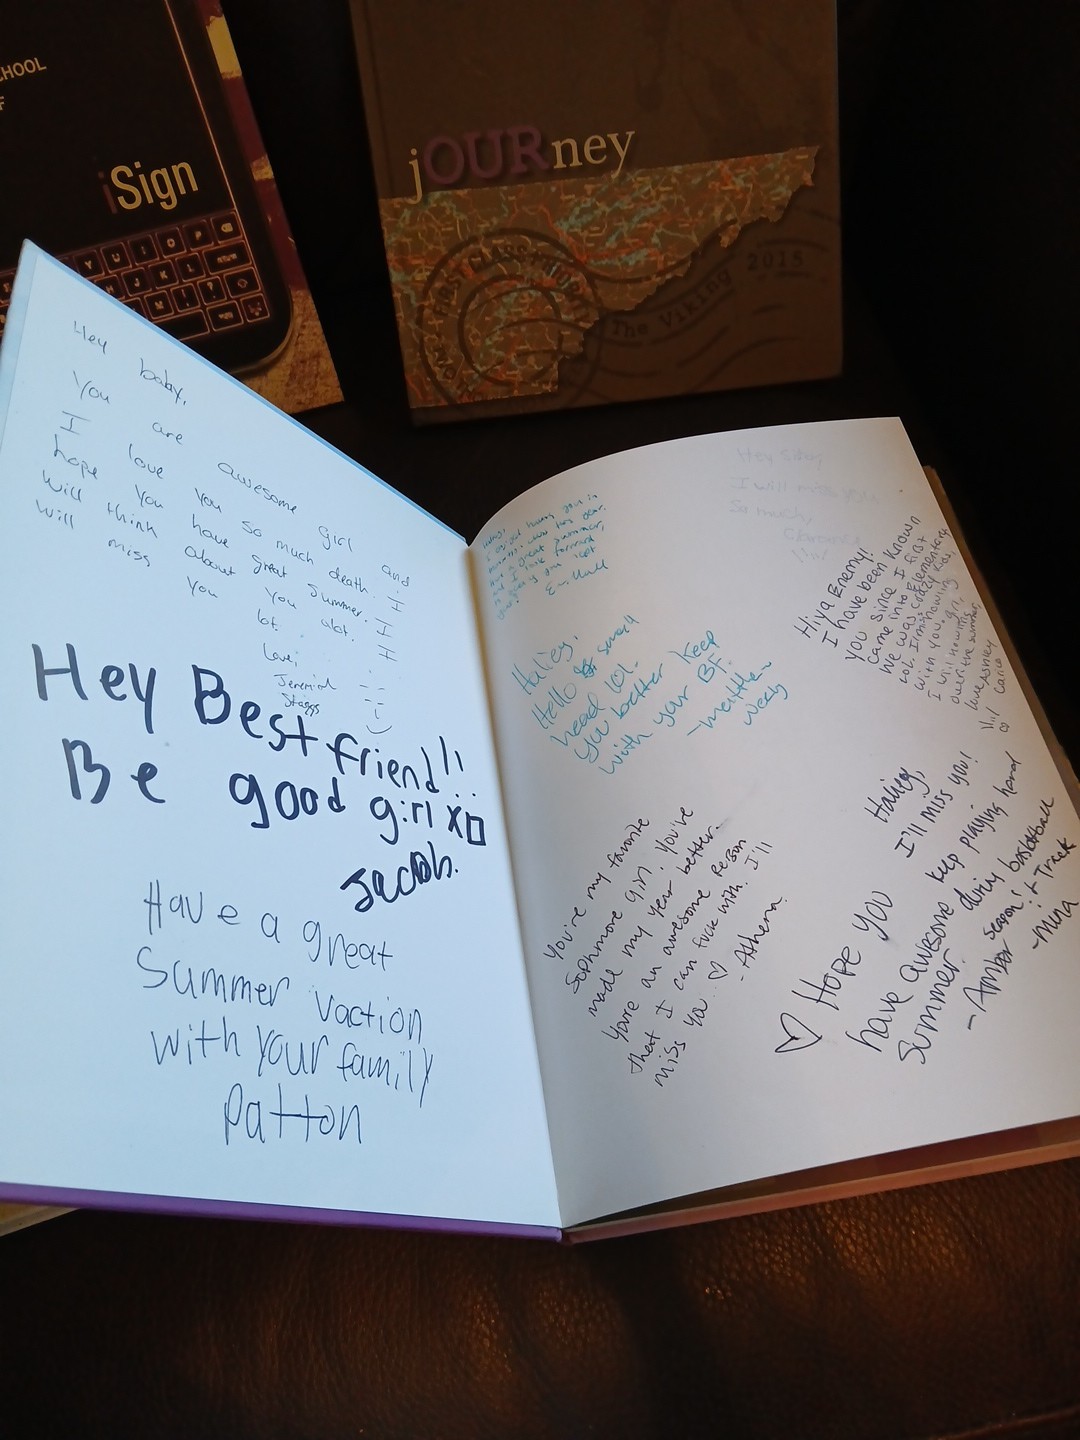 CHOOL
F
iSign
jOURney
FIRST CLASS
The Viking 2015
Hey baby,
You are awesome girl and
I love you so much death. I
hope you have great summer. I
will think about you alot. I
will miss you lot.
Love,
Jeremiah
Staggs
Hey Best friend!!
Be good girl XO
Jacob.
Have a great
Summer vaction
with your family
Patton
have a great summer,
and I look forward
Hailey,
Hello small
head lol.
you better keep
with your BF.
-matthew
I will miss you
so much,
Hiya Enemy!
I have been known
you since I first
came into Elementary
we was crazy kids,
lol.
with you girl,
I will
love Ashley
You're my favorite
Sophmore girl. You've
made my year better.
You're an awesome person
that I can fuck with. I'll
miss you. ♡ -Athena.
Hailey,
I'll miss you!
keep playing hard
during basketball
season! & Track
-Mina
♡ Hope you
have awesome
summer.
-Amber